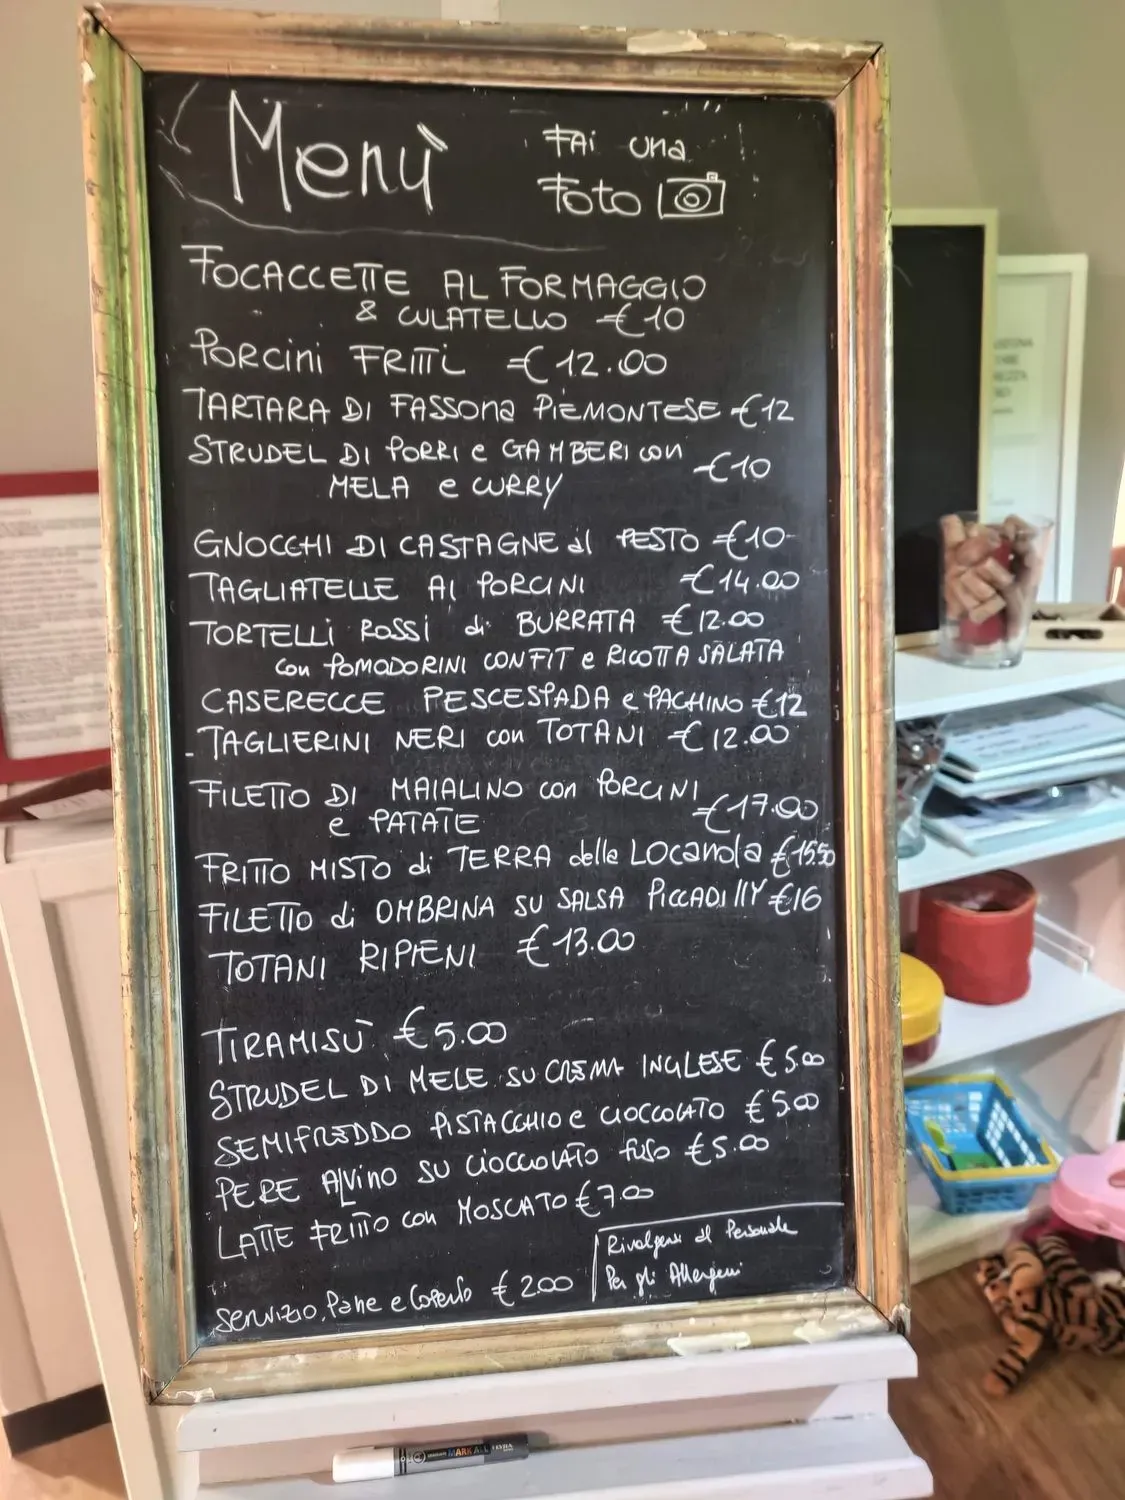 Menù
FAI una
Foto
FOCACCETTE AL FORMAGGIO
& CULATELLO €10
PORCINI FRITTI €12.00
TARTARA DI FASSONA PIEMONTESE €12
STRUDEL DI PORRI e GAMBERI con
MELA e CURRY €10
GNOCCHI DI CASTAGNE al PESTO €10-
TAGLIATELLE AI PORCINI €14.00
TORTELLI ROSSI di BURRATA €12.00
con POMODORINI CONFIT e RICOTTA SALATA
CASERECCE PESCESPADA e PACHINO €12
- TAGLIERINI NERI con TOTANI €12.00
FILETTO DI MAIALINO con PORCINI
e PATATE €17.00
FRITTO MISTO di TERRA della LOCANDA €15.50
FILETTO di OMBRINA SU SALSA PICCADILLY €16
TOTANI RIPIENI €13.00
TIRAMISÙ €5.00
STRUDEL DI MELE SU CREMA INGLESE €5.00
SEMIFREDDO PISTACCHIO e CIOCCOLATO €5.00
PERE AL VINO SU CIOCCOLATO fuso €5.00
LATTE FRITTO con MOSCATO €7.00
Servizio, Pane e Coperto €2.00
Rivolgersi al Personale
Per gli Allergeni
MARKALL